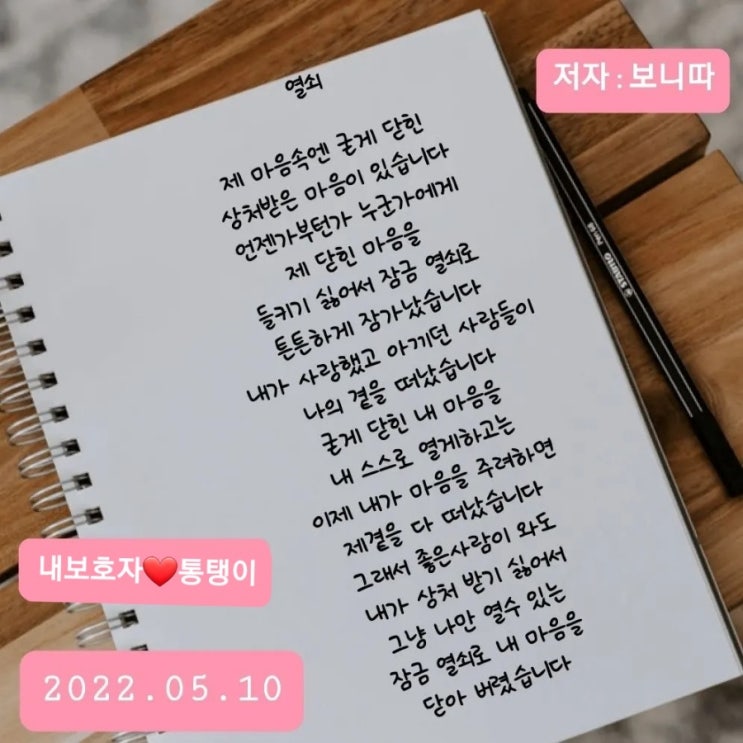 열쇠
저자 : 보니따
제 마음속엔 굳게 닫힌
상처받은 마음이 있습니다
언젠가부턴가 누군가에게
제 닫힌 마음을
들키기 싫어서 잠금 열쇠로
튼튼하게 장가났습니다
내가 사랑했고 아끼던 사람들이
나의 곁을 떠났습니다
굳게 닫힌 내 마음을
내 스스로 열게하고는
이제 내가 마음을 주려하면
제곁을 다 떠났습니다
그래서 좋은사람이 와도
내가 상처 받기 싫어서
그냥 나만 열수 있는
잠금 열쇠로 내 마음을
닫아 버렸습니다
STABILO
내보호자❤️통탱이
2022.05.10